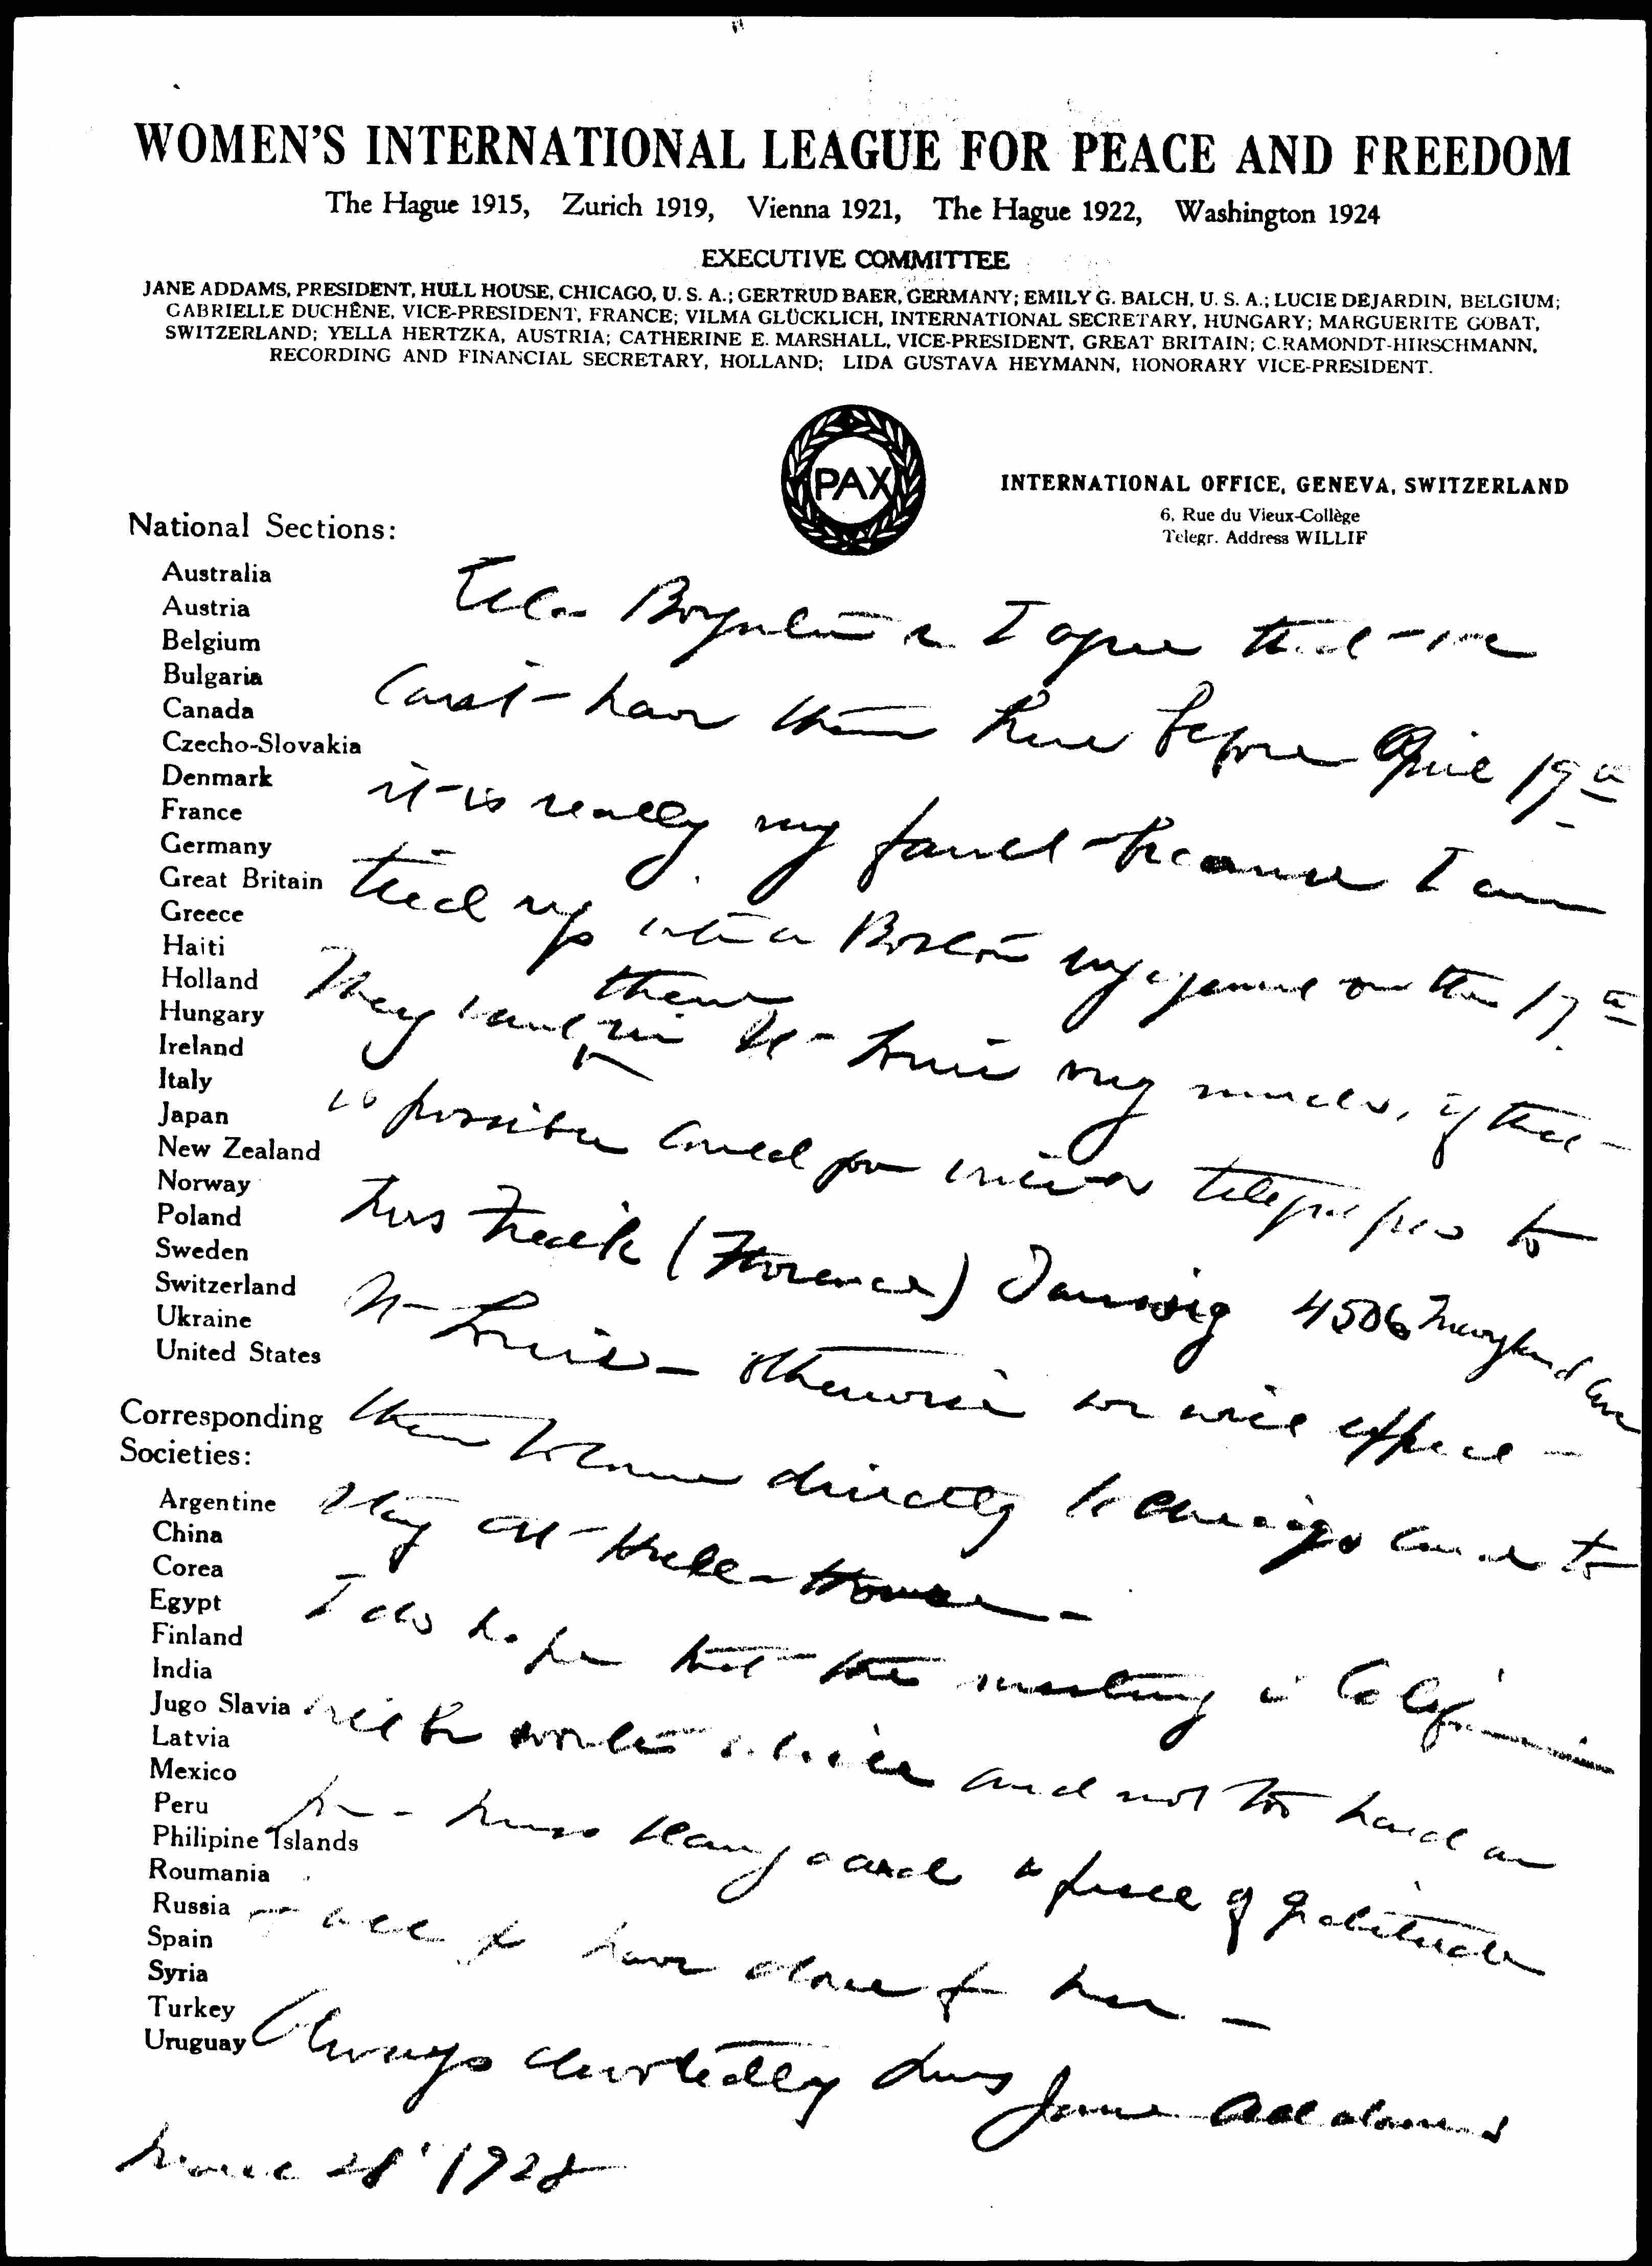 WOMEN'S INTERNATIONAL LEAGUE FOR PEACE AND FREEDOM
The Hague 1915, Zurich 1919, Vienna 1921, The Hague 1922, Washington 1924
EXECUTIVE COMMITTEE
JANE ADDAMS, PRESIDENT, HULL HOUSE, CHICAGO, U. S. A.; GERTRUD BAER, GERMANY; EMILY G. BALCH, U. S. A.; LUCIE DEJARDIN, BELGIUM;
GABRIELLE DUCHÊNE, VICE-PRESIDENT, FRANCE; VILMA GLÜCKLICH, INTERNATIONAL SECRETARY, HUNGARY; MARGUERITE GOBAT,
SWITZERLAND; YELLA HERTZKA, AUSTRIA; CATHERINE E. MARSHALL, VICE-PRESIDENT, GREAT BRITAIN; C.RAMONDT-HIRSCHMANN,
RECORDING AND FINANCIAL SECRETARY, HOLLAND; LIDA GUSTAVA HEYMANN, HONORARY VICE-PRESIDENT.
PAX
INTERNATIONAL OFFICE, GENEVA, SWITZERLAND
6, Rue du Vieux-Collège
Telegr. Address WILLIF
National Sections:
Australia
Austria
Belgium
Bulgaria
Canada
Czecho-Slovakia
Denmark
France
Germany
Great Britain
Greece
Haiti
Holland
Hungary
Ireland
Italy
Japan
New Zealand
Norway
Poland
Sweden
Switzerland
Ukraine
United States
Corresponding
Societies:
Argentine
China
Corea
Egypt
Finland
India
Jugo Slavia
Latvia
Mexico
Peru
Philipine Islands
Roumania
Russia
Spain
Syria
Turkey
Uruguay
Boynton & I agree that we
can't have them here before April 19th
it is really my fault because I am
tied up with a Boston engagement on the 17th
They want them in St Louis very much, if that
is possible could you write or telegraph to
Mrs (Florence) Taussig 4506 Maryland Ave
St Louis - otherwise we will expect
them to come directly to Chicago and to
stay at Hull-House -
I do hope that the meeting in California
will be worth while and not too hard on
you - Miss Haugaard is full of gratitude
for all you have done for her -
Always devotedly yours Jane Addams
March 28' 1928